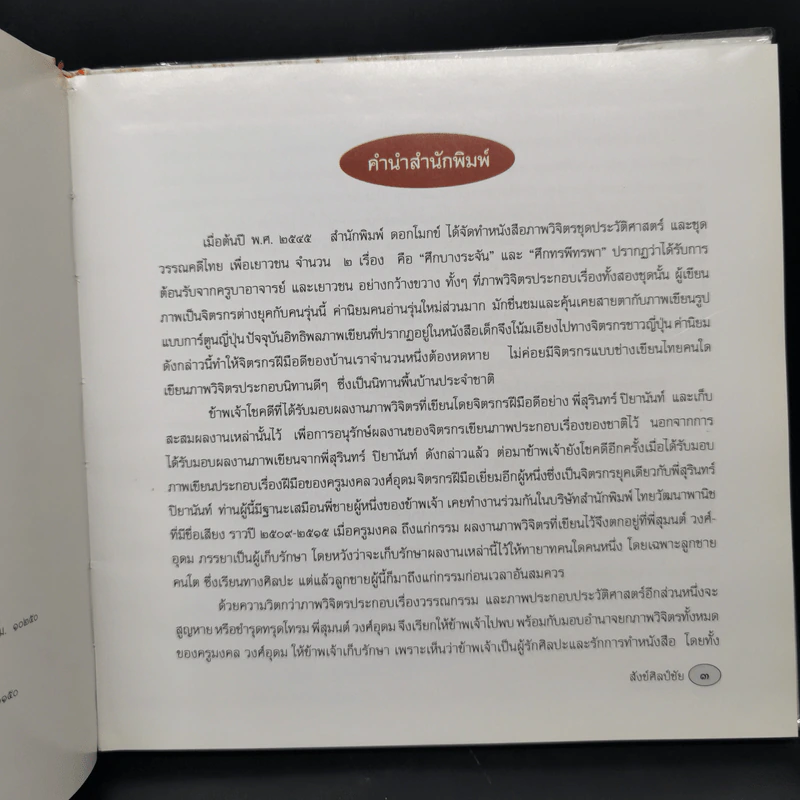 คำนำสำนักพิมพ์
เมื่อต้นปี พ.ศ. ๒๕๔๕ สำนักพิมพ์ ดอกโมกข์ ได้จัดทำหนังสือภาพวิจิตรชุดประวัติศาสตร์ และชุด
วรรณคดีไทย เพื่อเยาวชน จำนวน ๒ เรื่อง คือ “ศึกบางระจัน” และ “ศึกทรพีทรพา” ปรากฏว่าได้รับการ
ต้อนรับจากครูบาอาจารย์ และเยาวชน อย่างกว้างขวาง ทั้งๆ ที่ภาพวิจิตรประกอบเรื่องทั้งสองชุดนั้น ผู้เขียน
ภาพเป็นจิตรกรต่างยุคกับคนรุ่นนี้ ค่านิยมคนอ่านรุ่นใหม่ส่วนมาก มักชื่นชมและคุ้นเคยสายตากับภาพเขียนรูป
แบบการ์ตูนญี่ปุ่น ปัจจุบันอิทธิพลภาพเขียนที่ปรากฏอยู่ในหนังสือเด็กจึงโน้มเอียงไปทางจิตรกรชาวญี่ปุ่น ค่านิยม
ดังกล่าวนี้ทำให้จิตรกรฝีมือดีของบ้านเราจำนวนหนึ่งต้องหดหาย ไม่ค่อยมีจิตรกรแบบช่างเขียนไทยคนใด
เขียนภาพวิจิตรประกอบนิทานดีๆ ซึ่งเป็นนิทานพื้นบ้านประจำชาติ
ข้าพเจ้าโชคดีที่ได้รับมอบผลงานภาพวิจิตรที่เขียนโดยจิตรกรฝีมือดีอย่าง พี่สุรินทร์ ปิยานันท์ และเก็บ
สะสมผลงานเหล่านั้นไว้ เพื่อการอนุรักษ์ผลงานของจิตรกรเขียนภาพประกอบเรื่องของชาติไว้ นอกจากการ
ได้รับมอบผลงานภาพเขียนจากพี่สุรินทร์ ปิยานันท์ ดังกล่าวแล้ว ต่อมาข้าพเจ้ายังโชคดีอีกครั้งเมื่อได้รับมอบ
ภาพเขียนประกอบเรื่องฝีมือของครูมงคล วงศ์อุดม จิตรกรฝีมือเยี่ยมอีกผู้หนึ่งซึ่งเป็นจิตรกรยุคเดียวกับพี่สุรินทร์
ปิยานันท์ ท่านผู้นี้มีฐานะเสมือนพี่ชายผู้หนึ่งของข้าพเจ้า เคยทำงานร่วมกันในบริษัทสำนักพิมพ์ ไทยวัฒนาพานิช
ที่มีชื่อเสียง ราวปี ๒๕๐๙-๒๕๑๕ เมื่อครูมงคล ถึงแก่กรรม ผลงานภาพวิจิตรที่เขียนไว้จึงตกอยู่ที่พี่สุมนต์ วงศ์-
อุดม ภรรยาเป็นผู้เก็บรักษา โดยหวังว่าจะเก็บรักษาผลงานเหล่านี้ไว้ให้ทายาทคนใดคนหนึ่ง โดยเฉพาะลูกชาย
คนโต ซึ่งเรียนทางศิลปะ แต่แล้วลูกชายผู้นี้ก็มาถึงแก่กรรมก่อนเวลาอันสมควร
ด้วยความวิตกว่าภาพวิจิตรประกอบเรื่องวรรณกรรม และภาพประกอบประวัติศาสตร์อีกส่วนหนึ่งจะ
สูญหาย หรือชำรุดทรุดโทรม พี่สุมนต์ วงศ์อุดม จึงเรียกให้ข้าพเจ้าไปพบ พร้อมกับมอบอำนาจยกภาพวิจิตรทั้งหมด
ของครูมงคล วงศ์อุดม ให้ข้าพเจ้าเก็บรักษา เพราะเห็นว่าข้าพเจ้าเป็นผู้รักศิลปะและรักการทำหนังสือ โดยทั้ง
สังข์ศิลป์ชัย ๓
ม. ๑๐๒๕๐
๑๕๐